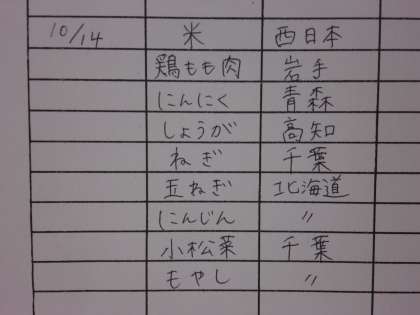 10/14 米 西日本
鶏もも肉 岩手
にんにく 青森
しょうが 高知
ねぎ 千葉
玉ねぎ 北海道
にんじん 〃
小松菜 千葉
もやし 〃